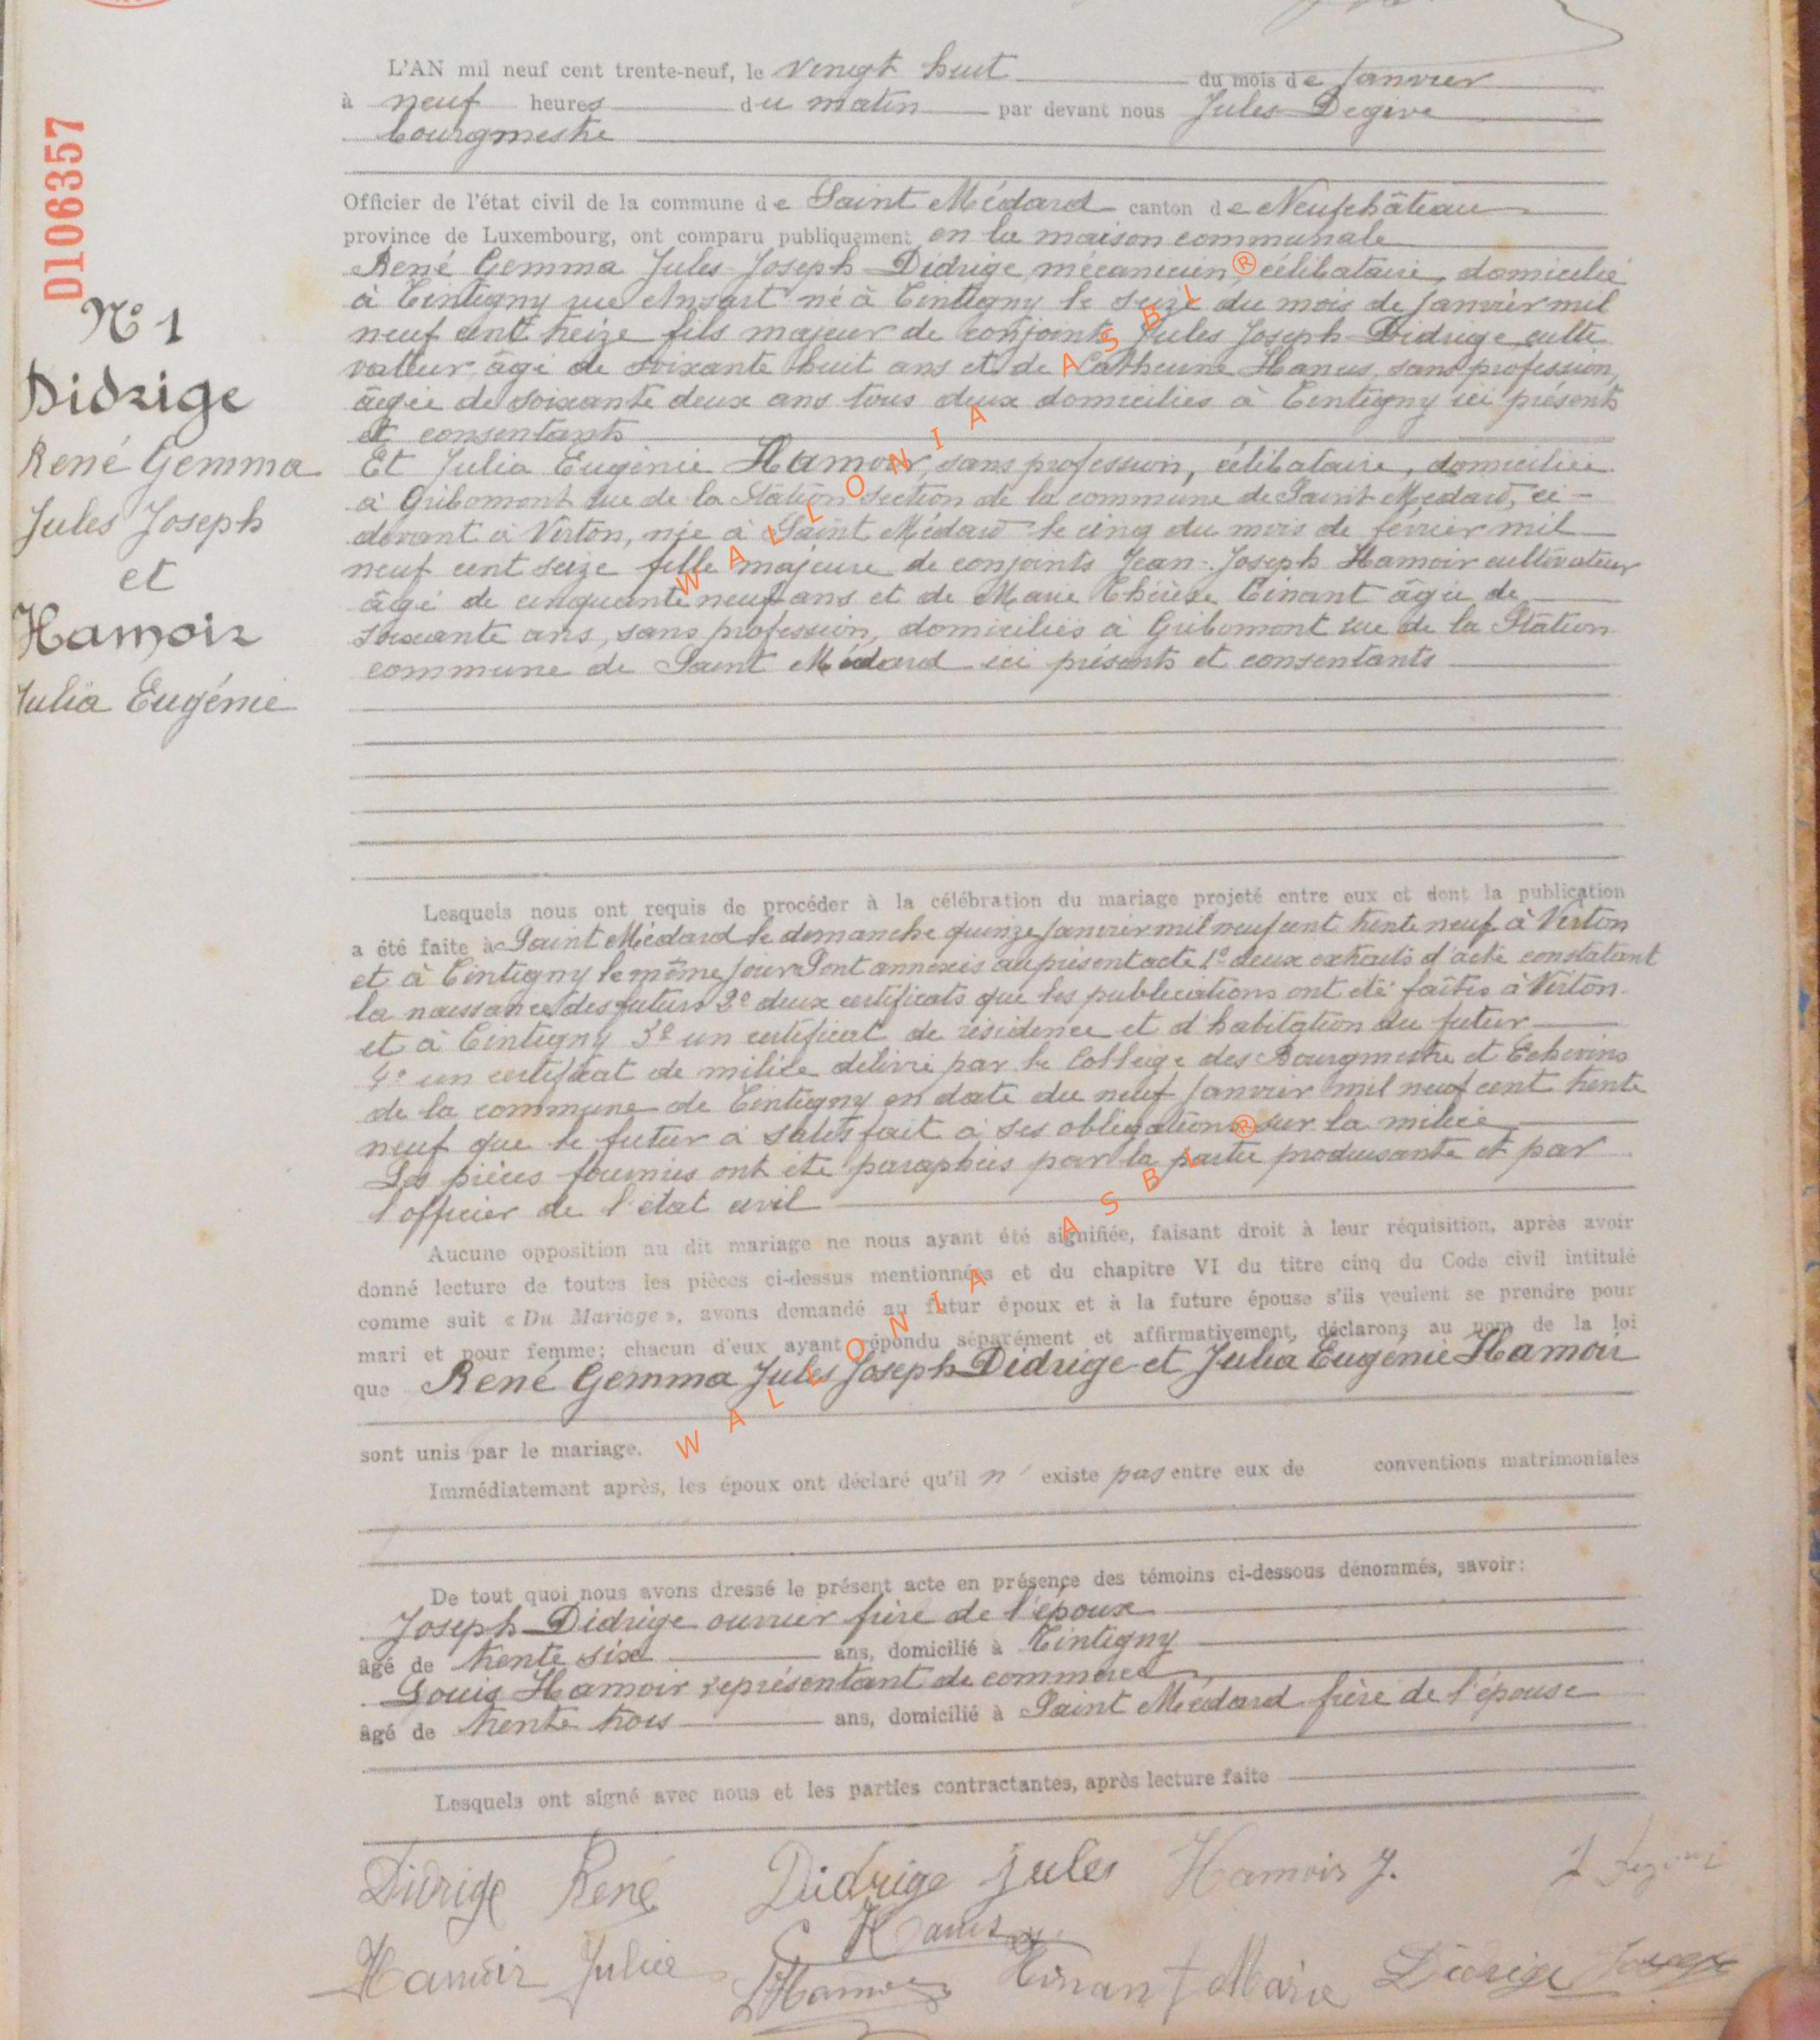 L'AN mil neuf cent trente-neuf, le vingt huit du mois de Janvier
à neuf heures du matin par devant nous Jules Degive
bourgmestre
Officier de l'état civil de la commune de Saint Médard canton de Neufchâteau
province de Luxembourg, ont comparu publiquement en la maison communale
René Gemma Jules Joseph Didrige, mécanicien, célibataire, domicilié
à Tintigny rue Ansart né à Tintigny le seize du mois de Janvier mil
neuf cent treize fils majeur de conjoints Jules Joseph Didrige culti
vateur âgé de soixante huit ans et de Catherine Hanus, sans profession,
âgée de soixante deux ans tous deux domiciliés à Tintigny ici présents
et consentants
Et Julia Eugénie Hamoir, sans profession, célibataire, domiciliée
à Gribomont rue de la Station section de la commune de Saint Médard, ci-
devant à Virton, née à Saint Médard le cinq du mois de février mil
neuf cent seize fille majeure de conjoints Jean-Joseph Hamoir cultivateur
âgé de cinquante neuf ans et de Marie Thérèse Tinant âgée de
soixante ans, sans profession, domiciliés à Gribomont rue de la Station
commune de Saint Médard ici présents et consentants
D106357
N° 1
Didrige
René Gemma
Jules Joseph
et
Hamoir
Julia Eugénie
Lesquels nous ont requis de procéder à la célébration du mariage projeté entre eux et dont la publication
a été faite à Saint Médard le dimanche quinze Janvier mil neuf cent trente neuf à Virton
et à Tintigny le même jour Sont annexés au présent acte 1° deux extraits d'acte constatant
la naissance des futurs 2° deux certificats que les publications ont été faites à Virton
et à Tintigny 3° un certificat de résidence et d'habitation du futur
4° un certificat de milice délivré par le Collège des Bourgmestre et Echevins
de la commune de Tintigny en date du neuf Janvier mil neuf cent trente
neuf que le futur a satisfait à ses obligations sur la milice
Les pièces fournies ont été paraphées par la partie produisante et par
l'officier de l'état civil
Aucune opposition au dit mariage ne nous ayant été signifiée, faisant droit à leur réquisition, après avoir
donné lecture de toutes les pièces ci-dessus mentionnées et du chapitre VI du titre cinq du Code civil intitulé
comme suit « Du Mariage », avons demandé au futur époux et à la future épouse s'ils veulent se prendre pour
mari et pour femme; chacun d'eux ayant répondu séparément et affirmativement, déclarons au nom de la loi
que René Gemma Jules Joseph Didrige et Julia Eugénie Hamoir
sont unis par le mariage.
Immédiatement après, les époux ont déclaré qu'il n' existe pas entre eux de conventions matrimoniales
De tout quoi nous avons dressé le présent acte en présence des témoins ci-dessous dénommés, savoir:
Joseph Didrige ouvrier frère de l'époux
âgé de trente six ans, domicilié à Tintigny
Louis Hamoir représentant de commerce
âgé de trente trois ans, domicilié à Saint Médard frère de l'épouse
Lesquels ont signé avec nous et les parties contractantes, après lecture faite
Didrige René Didrige Jules Hamoir J.
C Hanus
Hamoir Julia L Hamoir Tinant Marie Didrige Joseph
WALLONIA ASBL ®
WALLONIA ASBL ®